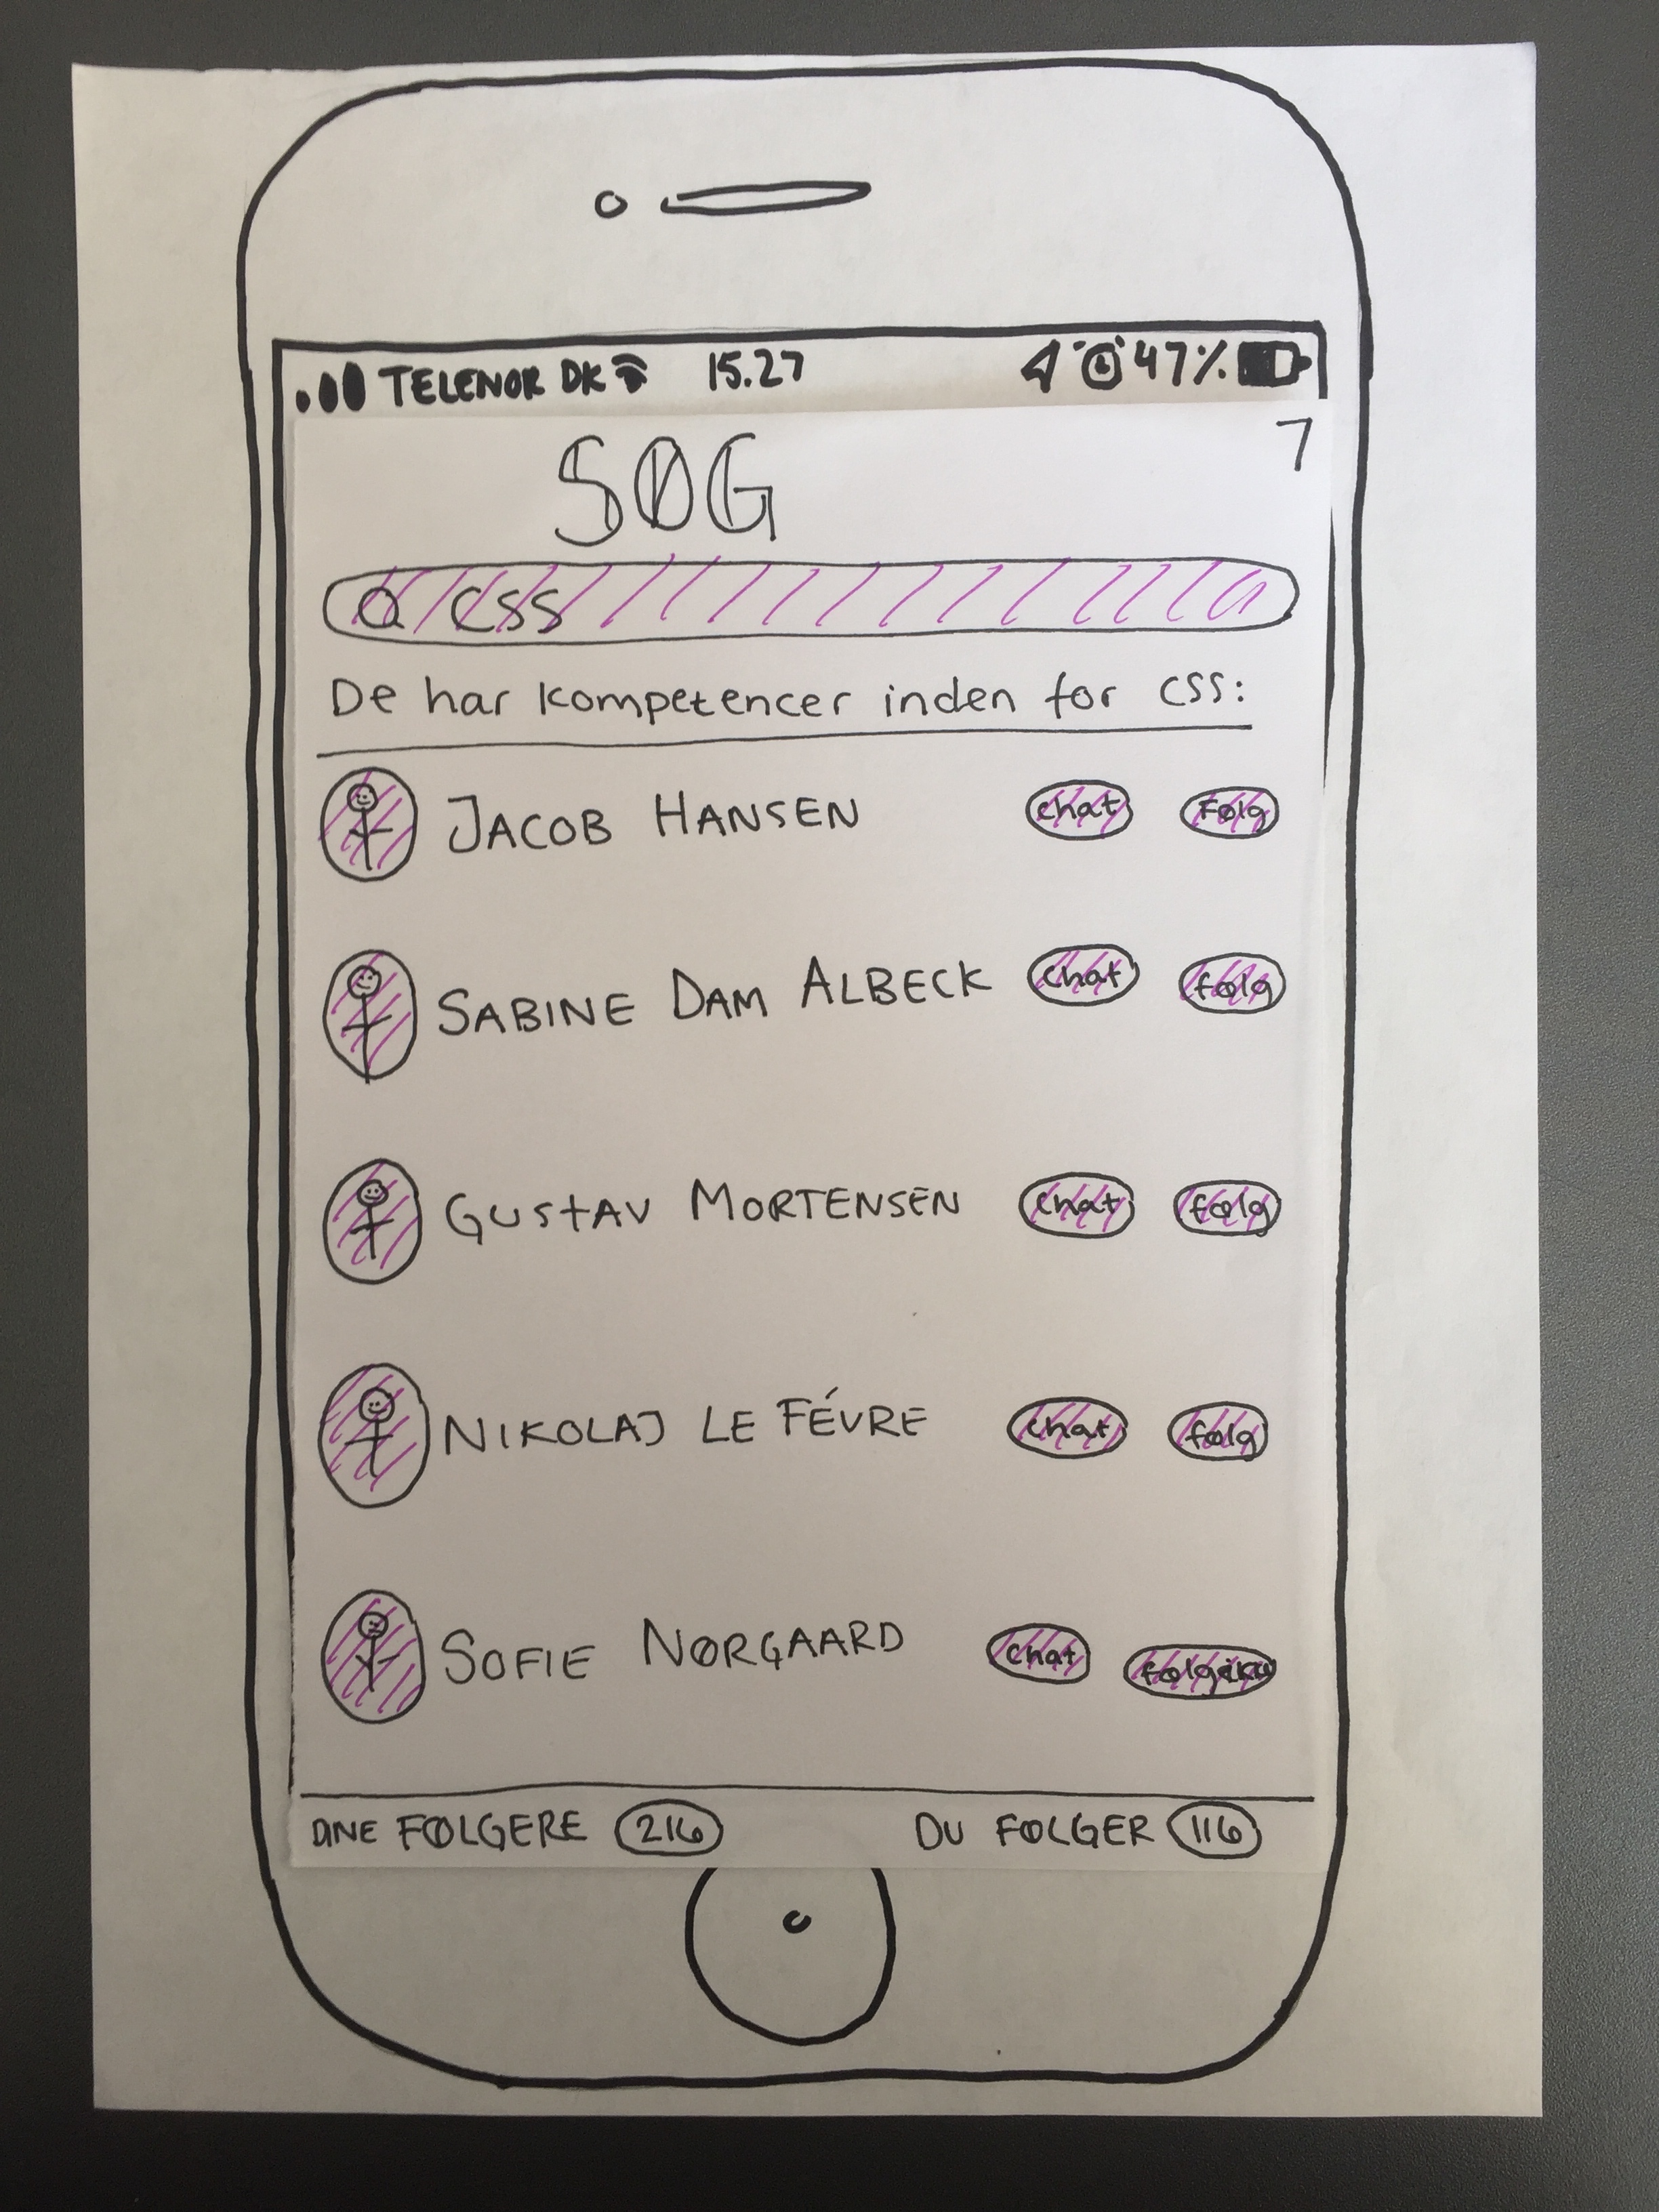 TELENOR DK 15.27 47%
7
SØG
CSS
De har kompetencer inden for CSS:
JACOB HANSEN chat Følg
SABINE DAM ALBECK chat følg
GUSTAV MORTENSEN chat følg
NIKOLAJ LE FÉVRE chat følg
SOFIE NØRGAARD chat
DINE FØLGERE 216 DU FØLGER 116